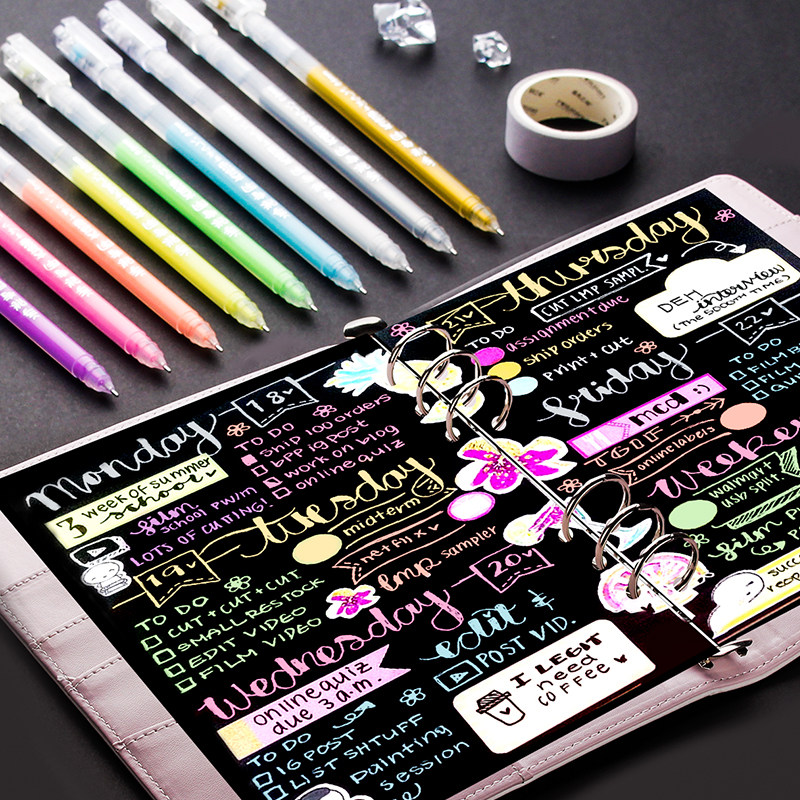 monday
18
TO DO
SHIP 100 ORDERS
BPP IG POST
WORK ON BLOG
ONLINE QUIZ
3 week of summer
school
film
SCHOOL PW/M
LOTS OF CUTING!
tuesday
19
midterm
netflix
lmp sampler
TO DO
CUT + CUT + CUT
SMALL RESTOCK
EDIT VIDEO
FILM VIDEO
wednesday
20
online quiz
due 3 a.m.
edit &
POST VID.
TO DO
IG POST
LIST SHTUFF
painting
session
I LEGIT
need
COFFEE
thursday
21
CUT LMP SAMPL
TO DO
assignment due
ship orders
print + cut
DEH interview
(THE 500GTH TIME)
friday
22
mcd :)
TGIF
onlinelabels
TO DO
FILM
FILM
weeke
walmart
usb split
film